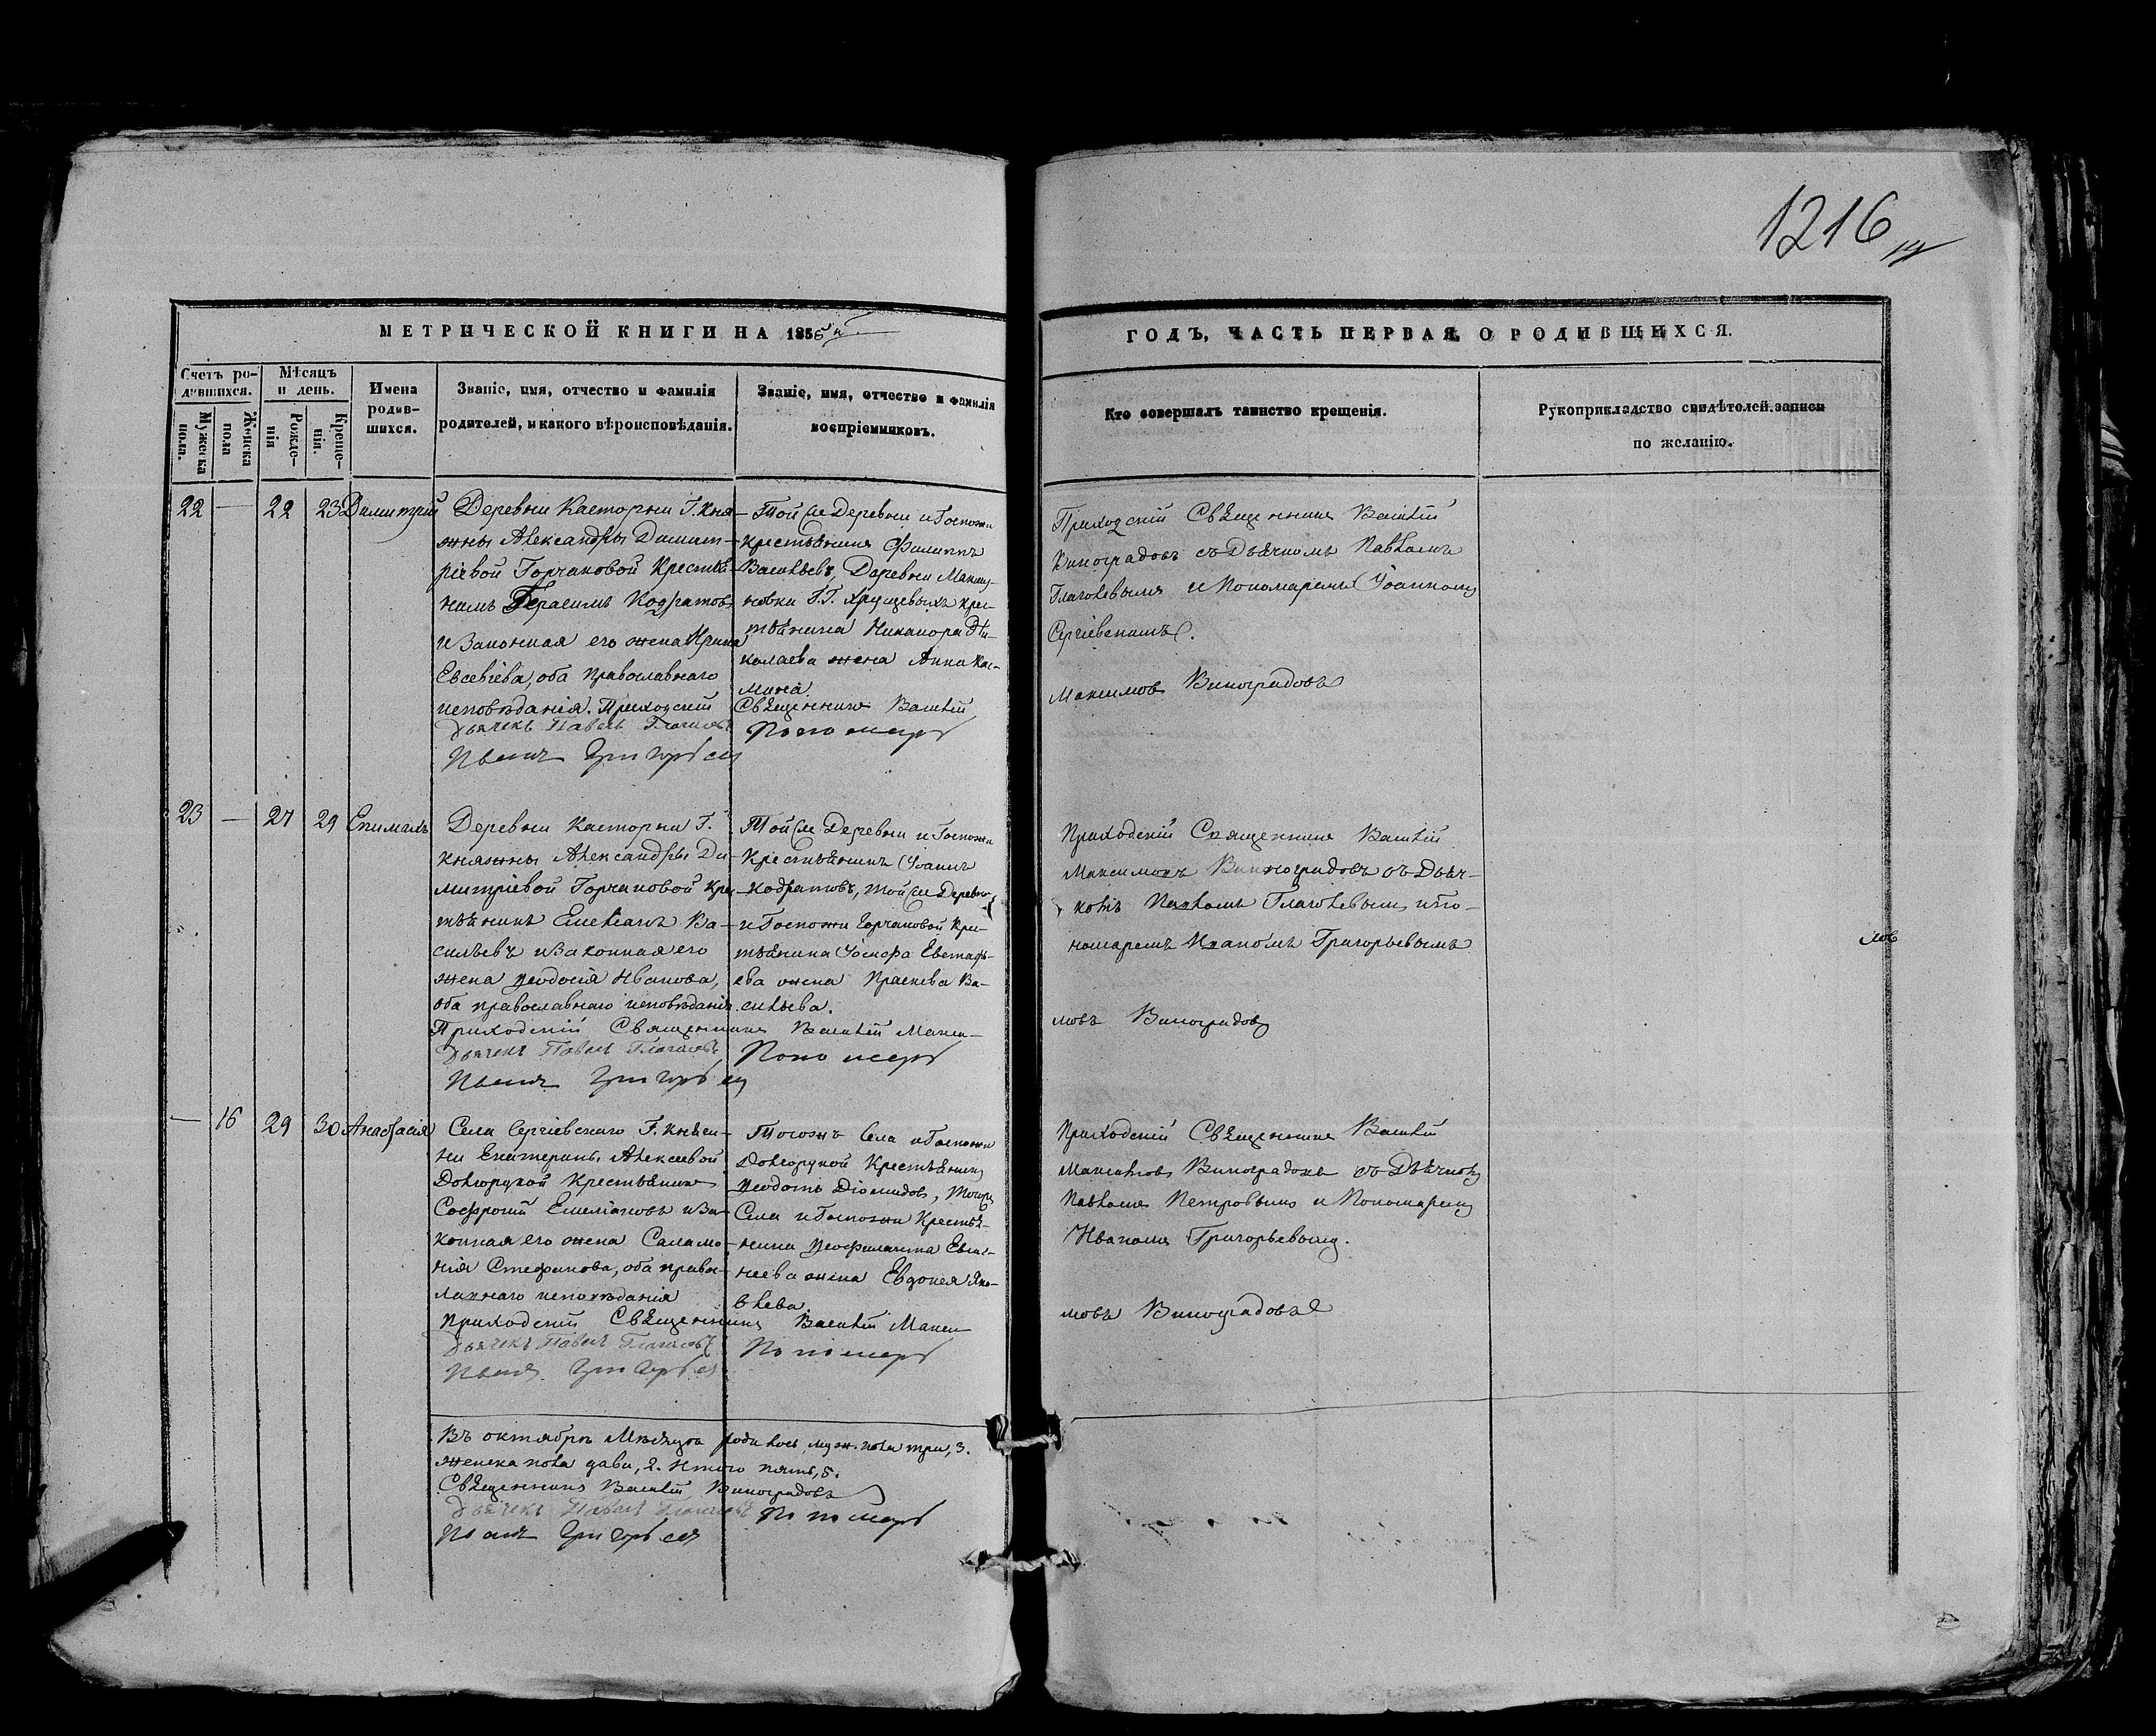 1216
МЕТРИЧЕСКОЙ КНИГИ НА 1856й
ГОДЪ, ЧАСТЬ ПЕРВАЯ, О РОДИВШИХСЯ.
Счетъ ро-
дившихся.
Мужеска
пола.
Женска
пола
Мѣсяцъ
и день.
Рожде-
нія
Креще-
нія.
Имена
родив-
шихся.
Званіе, имя, отчество и фамилія
родителей, и какого вѣроисповѣданія.
Званіе, имя, отчество и фамилія
воспріемниковъ.
Кто совершалъ таинство крещенія.
Рукоприкладство свидѣтелей записи
по желанію.
22 — 22 23 Димитрій
Деревни Касторни Г. Кня-
жны Александры Димит-
ріевой Горчаковой Крестья-
нинъ Герасимъ Кодратовъ
и Законная его жена Ирина
Евсевіева, оба православнаго
исповѣданія. Приходскій
Дьячекъ Павелъ
Иванъ Григорьевъ
Той же Деревни и Госпожи
крестьянинъ Филиппъ
Васильевъ, Деревни
новки Г.Г. Хрущевыхъ крес-
тьянина Никанора Ни-
колаева жена Анна Кос-
мина.
Священникъ Василій
Пономарь
Приходскій Священникъ Василій
Виноградовъ съ Дьячкомъ Павломъ
Глаголевымъ и Пономаремъ Іоанномъ
Сергіевскимъ.
Максимовъ Виноградовъ
23 — 27 29
Деревни Касторни Г.
Княжны Александры Ди-
митріевой Горчаковой Крес-
тьянинъ Емеліанъ Ва-
сильевъ и Законная его
жена Ѳеодосія Иванова,
оба православнаго исповѣданія.
Приходскій Священникъ Василій Макси-
Дьячекъ Павелъ
Иванъ Григорьевъ
Той же Деревни и Госпожи
Крестьянинъ Іоаннъ
Кодратовъ, той же Деревни
и Госпожи Горчаковой Крес-
тьянина Іосифа Евстафь-
ева жена Праскева Ва-
сильева.
Пономарь
Приходскій Священникъ Василій
Максимовъ Виноградовъ съ Дьяч-
комъ Павломъ Глаголевымъ и По-
номаремъ Иваномъ Григорьевымъ
мовъ Виноградовъ
— 16 29 30 Анастасія
Села Сергіевскаго Г. Княги-
ни Екатерины Алексеевой
Долгорукой Крестьянинъ
Софроній Емеліановъ и За-
конная его жена Саламо-
нія Стефанова, оба право-
славнаго исповѣданія
Приходскій Священникъ Василій Макси
Дьячекъ Павелъ
Иванъ Григорьевъ
Тогожъ Села и Госпожи
Долгорукой Крестьянинъ
Ѳеодотъ Діомидовъ, Тогожъ
Села и Госпожи Крестья-
нина Ѳеофилакта
жена Евдокея Яко-
влева.
Пономарь
Приходскій Священникъ Василій
Максимовъ Виноградовъ съ Дьячкомъ
Павломъ Петровымъ и Пономаремъ
Иваномъ Григорьевымъ.
мовъ Виноградовъ
Въ октябрѣ Мѣсяцѣ родилось муж. пола три, 3.
женска пола двѣ, 2. Итого пять, 5.
Священникъ Василій Виноградовъ
Дьячекъ Павелъ
Пономарь
Иванъ Григорьевъ